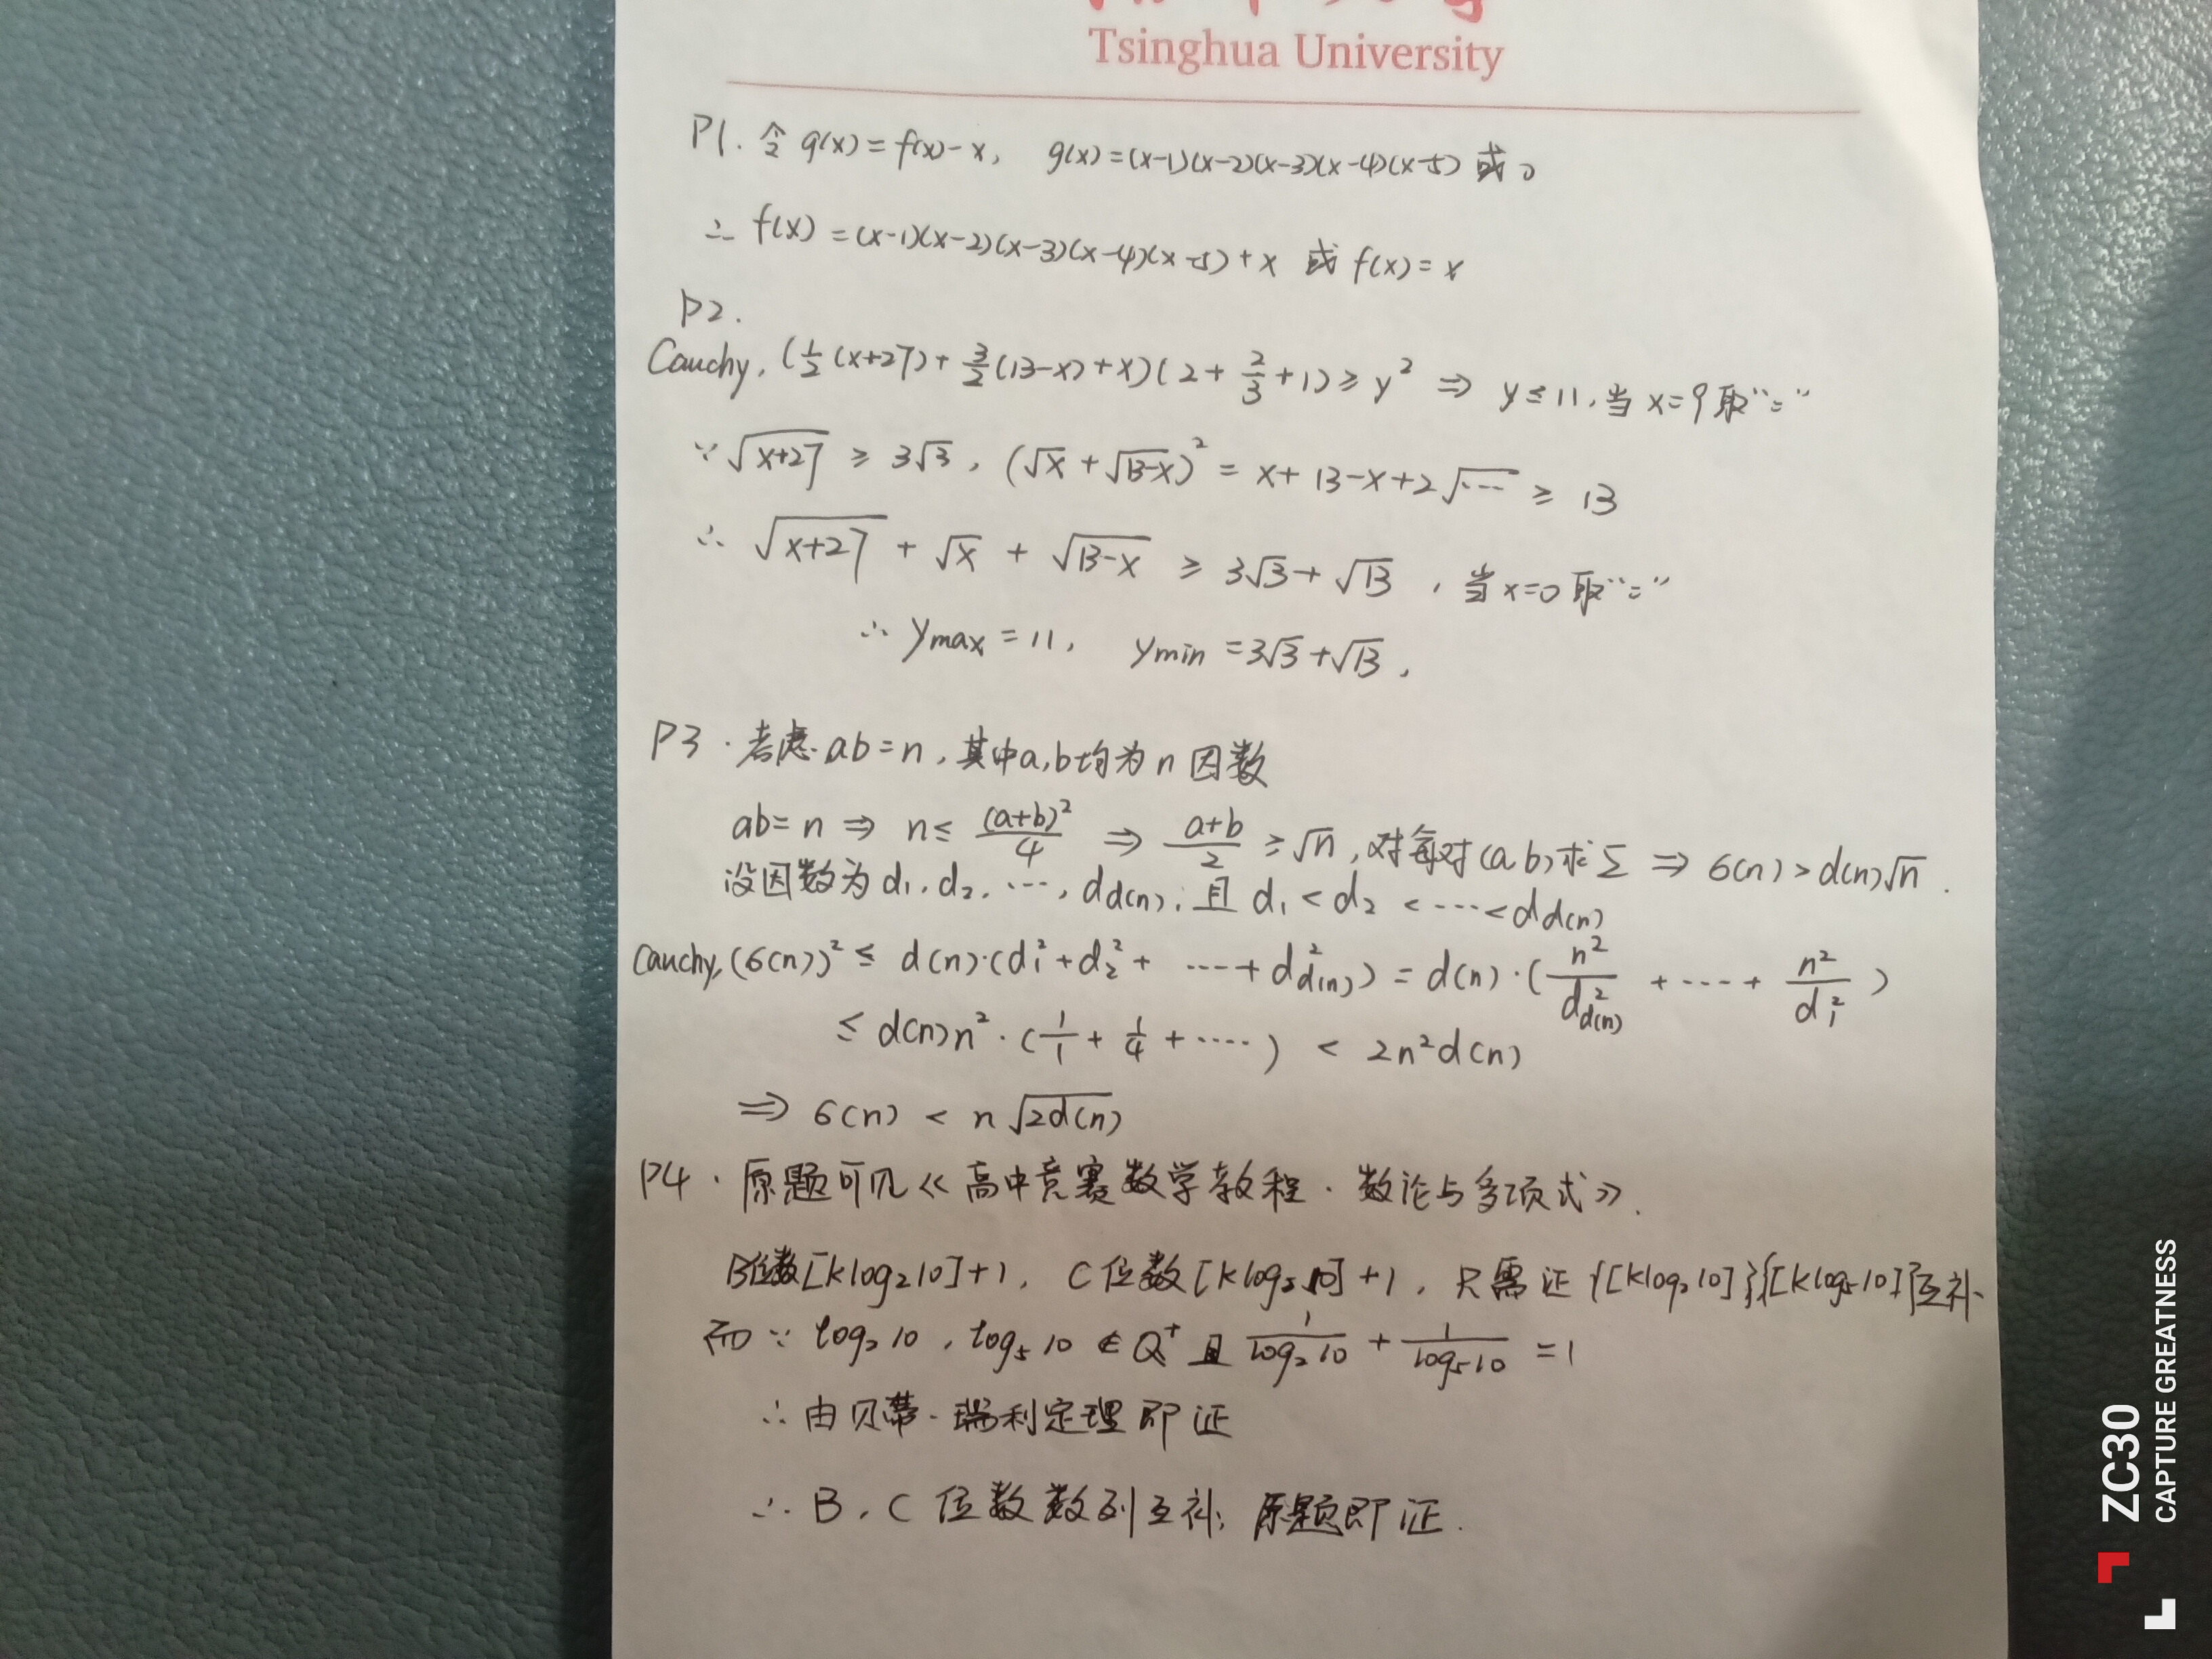 Tsinghua University
P1. 令 g(x) = f(x) - x, g(x) = (x-1)(x-2)(x-3)(x-4)(x-5) 或 0
∴ f(x) = (x-1)(x-2)(x-3)(x-4)(x-5) + x 或 f(x) = x
P2.
Cauchy, (1/2 (x+27) + 3/2 (13-x) + x)(2 + 2/3 + 1) ≥ y² ⇒ y ≤ 11, 当 x=9 取“=”
∵ √(x+27) ≥ 3√3, (√x + √(13-x))² = x + 13 - x + 2√… ≥ 13
∴ √(x+27) + √x + √(13-x) ≥ 3√3 + √13, 当 x=0 取“=”
∴ ymax = 11, ymin = 3√3 + √13,
P3. 考虑 ab = n, 其中 a, b 均为 n 因数
ab = n ⇒ n ≤ (a+b)²/4 ⇒ (a+b)/2 ≥ √n, 对每对 (a b) 求 Σ ⇒ 6(n) > d(n)√n.
设因数为 d₁, d₂, …, d_d(n), 且 d₁ < d₂ < … < d_d(n)
Cauchy, (6(n))² ≤ d(n)·(d₁² + d₂² + … + d²_d(n)) = d(n)·(n²/d²_d(n) + … + n²/d₁²)
≤ d(n)n²·(1/1 + 1/4 + …) < 2n²d(n)
⇒ 6(n) < n√(2d(n))
P4. 原题可见《高中竞赛数学教程·数论与多项式》.
B位数[klog₂10]+1, C位数[klog₅10]+1, 只需证{[klog₂10]}{[klog₅10]}互补
而∵ log₂10, log₅10 ∉ Q⁺ 且 1/log₂10 + 1/log₅10 = 1
∴ 由贝蒂-瑞利定理即证
∴ B, C 位数数列互补, 原题即证.
ZC30
CAPTURE GREATNESS